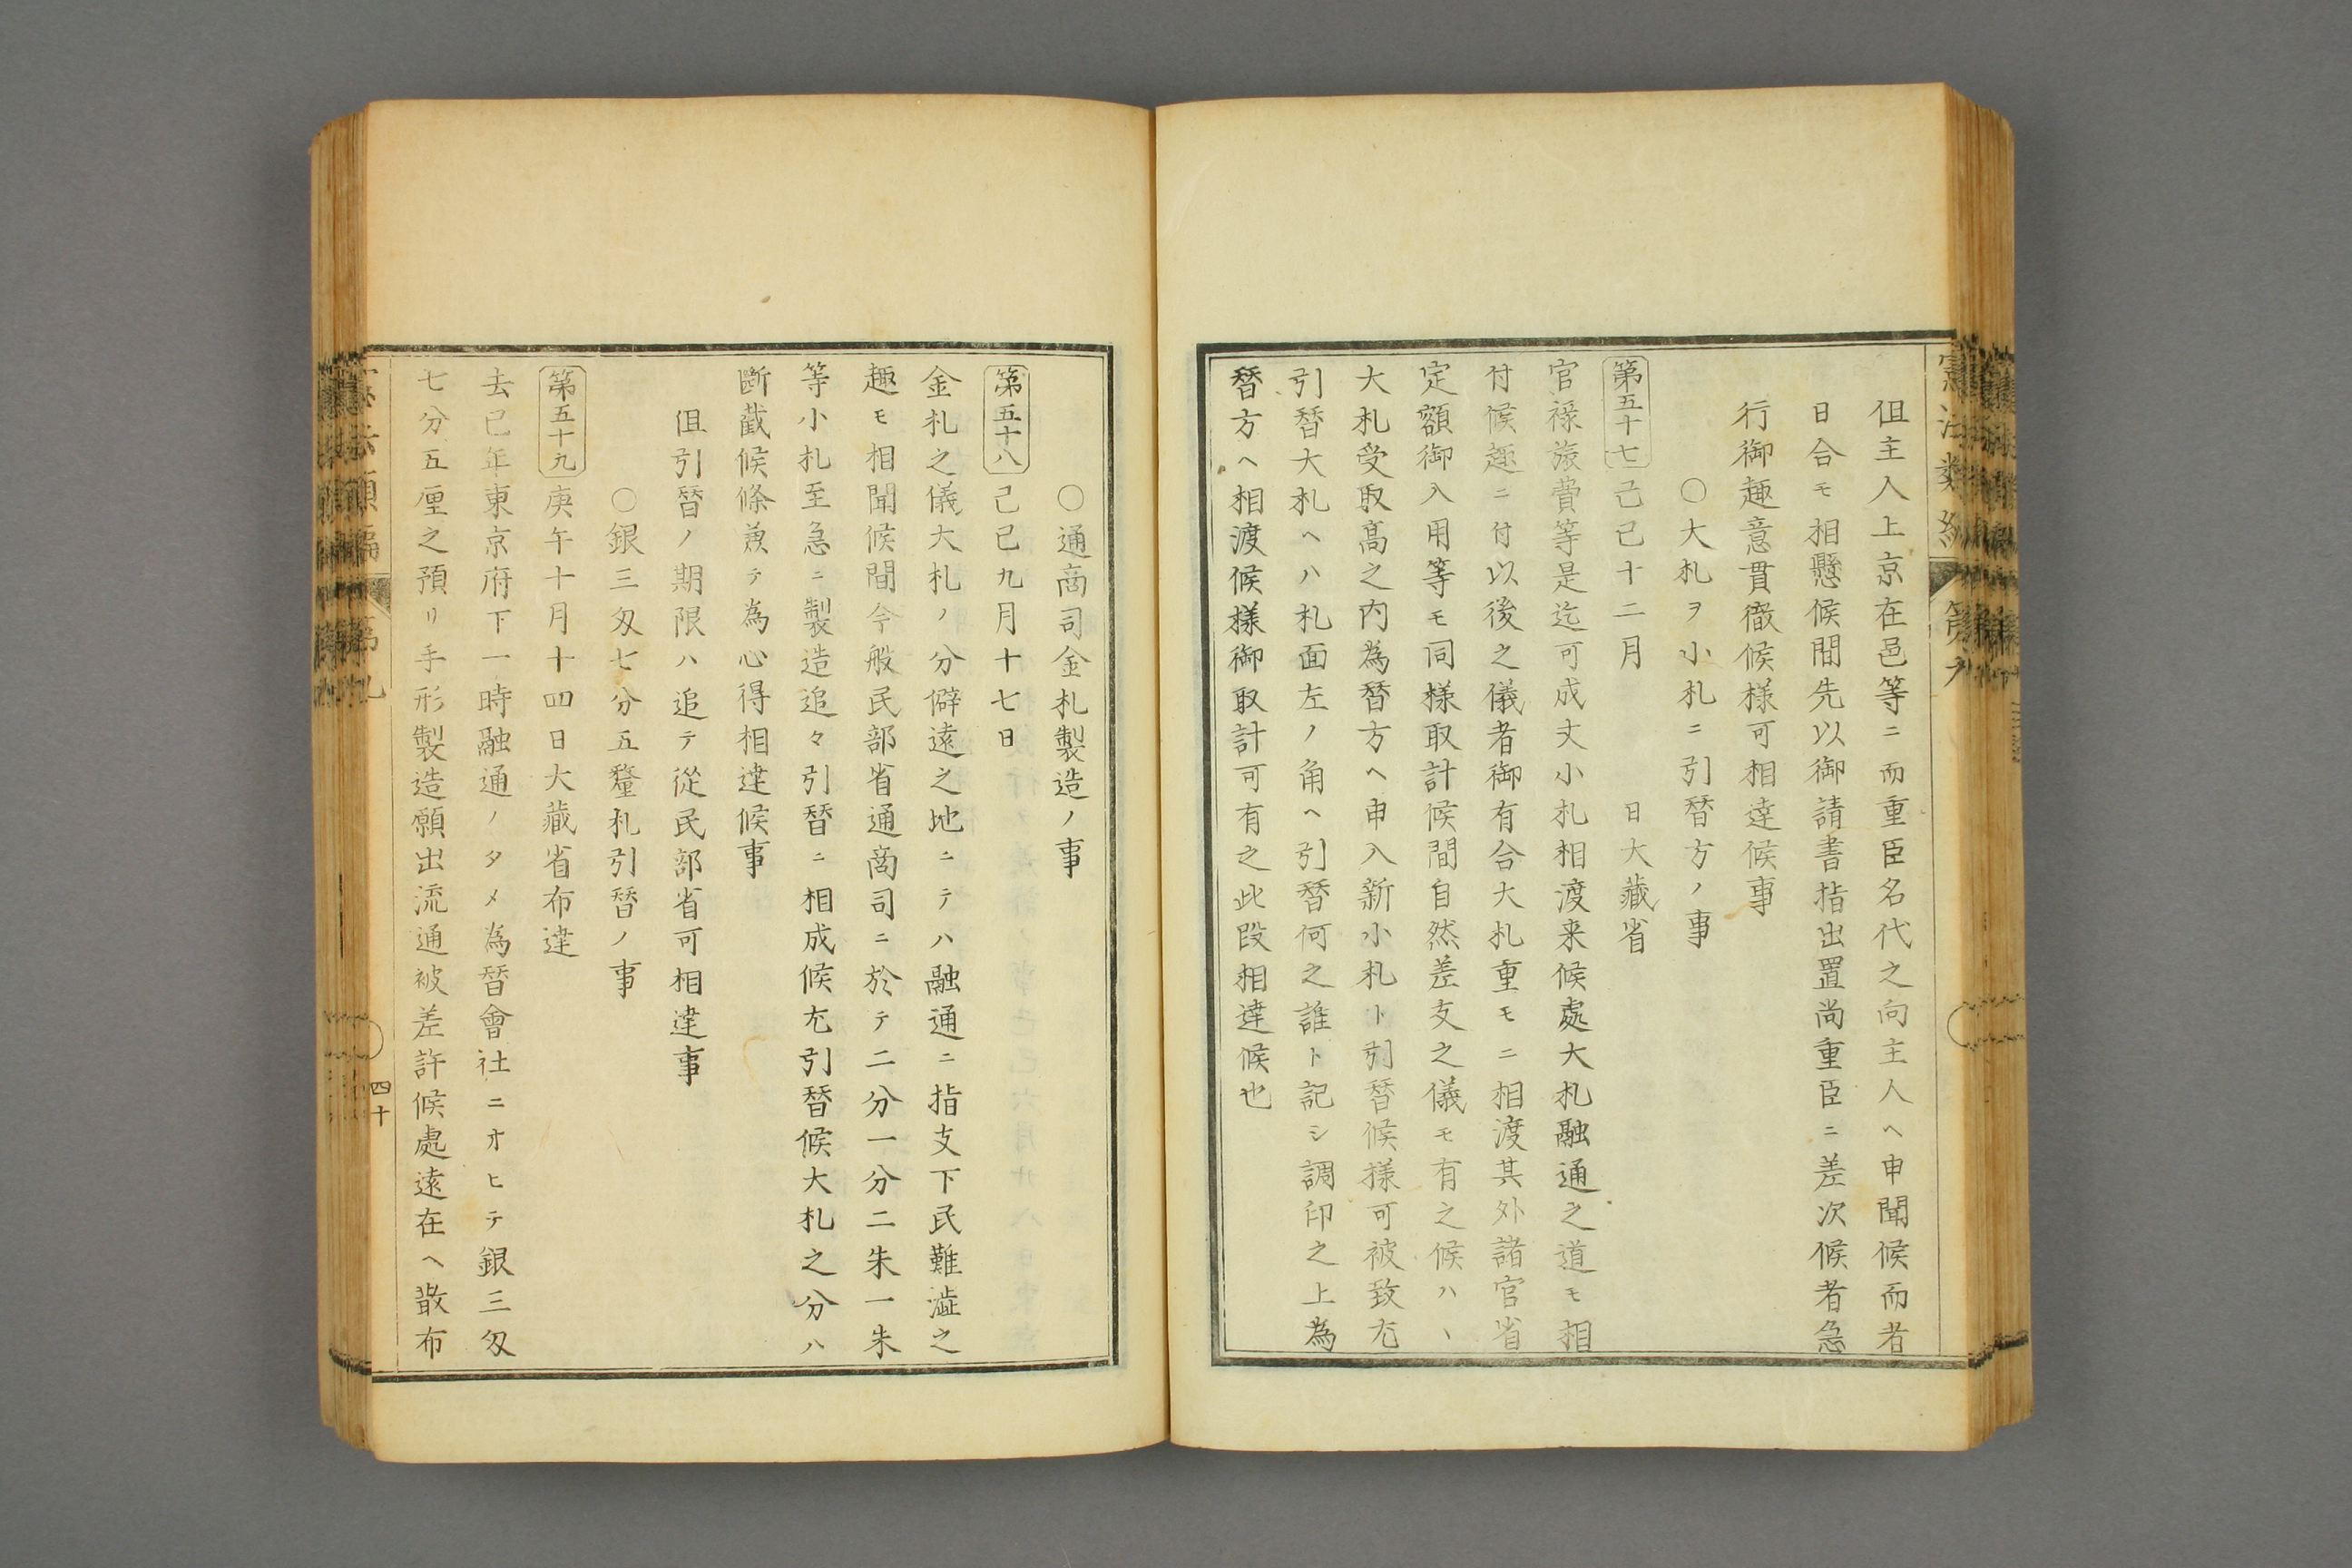 但主入上京在邑等ニ而重臣名代之向主人ヘ申聞候而者
日合モ相懸候間先以御請書指出置尚重臣ニ差次候者急
行御趣意貫徹候様可相達候事
○大札ヲ小札ニ引替方ノ事
第五十七己巳十二月　日大藏省
官祿旅費等是迄可成丈小札相渡来候處大札融通之道モ相
付候趣ニ付以後之儀者御有合大札重モニ相渡其外諸官省
定額御入用等モ同様取計候間自然差支之儀モ有之候ハヽ
大札受取髙之内為替方ヘ申入新小札ト引替候様可被致尤
引替大札ヘハ札面左ノ角ヘ引替何之誰ト記シ調印之上為
替方ヘ相渡候様御取計可有之此段相達候也
○通商司金札製造ノ事
第五十八己巳九月十七日
金札之儀大札ノ分僻遠之地ニテハ融通ニ指支下民難澁之
趣モ相聞候間今般民部省通商司ニ於テ二分一分二朱一朱
等小札至急ニ製造追々引替ニ相成候尤引替候大札之分ハ
斷截候條兼テ為心得相達候事
但引替ノ期限ハ追テ從民部省可相達事
○銀三匁七分五釐札引替ノ事
第五十九庚午十月十四日大藏省布達
去巳年東京府下一時融通ノタメ為替會社ニオヒテ銀三匁
七分五厘之預リ手形製造願出流通被差許候處遠在ヘ散布
四十